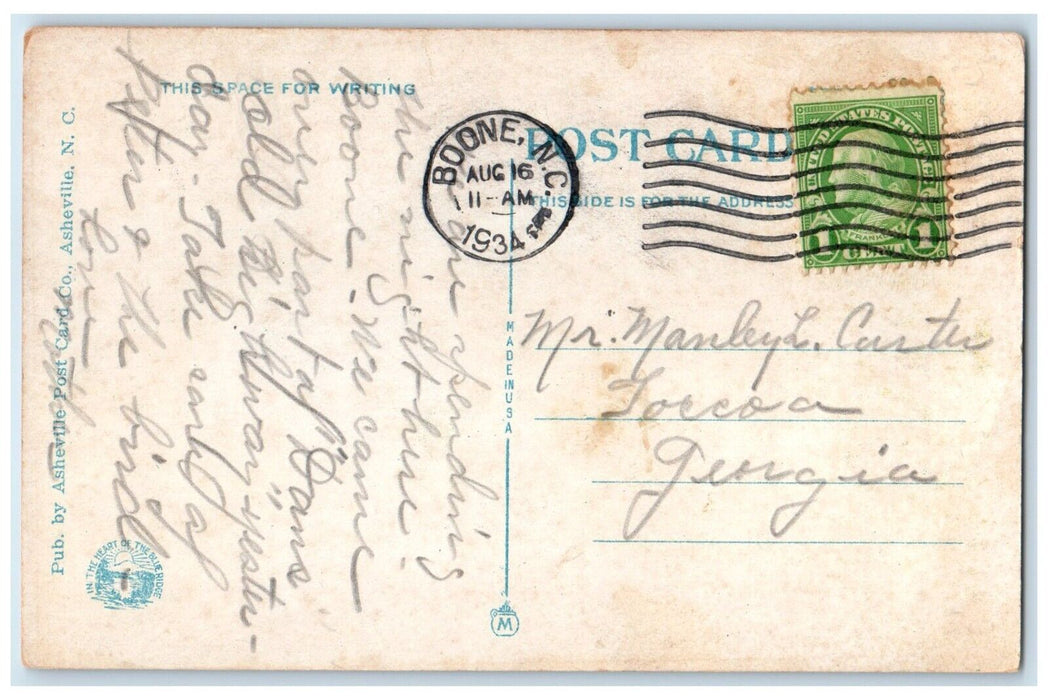 THIS SPACE FOR WRITING
We are spending
the night here.
Boone. We came
over part of "Dan's
old big hwar" yester-
day. Take care of
Pstun & the bird
Love
POST CARD
THIS SIDE IS FOR THE ADDRESS
BOONE, N.C.
AUG 16
11 - AM
1934
UNITED STATES POSTAGE
FRANKLIN
1 CENT 1
Mr. Manley L. Carter
Toccoa
Georgia
MADE IN USA
M
Pub. by Asheville Post Card Co., Asheville, N. C.
IN THE HEART OF THE BLUE RIDGE